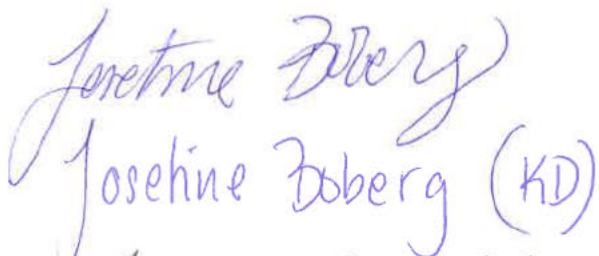 Josefine Boberg
Josefine Boberg (KD)